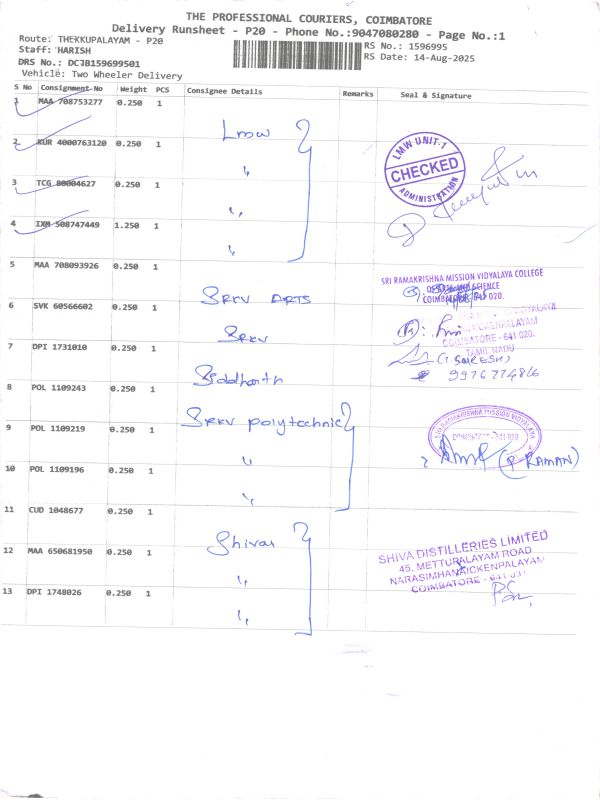 THE PROFESSIONAL COURIERS, COIMBATORE
Delivery Runsheet - P20 - Phone No.:9047080280 - Page No.:1
Route: THEKKUPALAYAM - P20
RS No.: 1596995
Staff: HARISH
RS Date: 14-Aug-2025
DRS No.: DCJB159699501
Vehicle: Two Wheeler Delivery
S No Consignment No Weight PCS Consignee Details Remarks Seal & Signature
1 MAA 708753277 0.250 1
Lmw
2 KUR 4000763120 0.250 1
LMW UNIT-1
CHECKED
ADMINISTRATION
3 TCG 80004627 0.250 1
4 IXM 508747449 1.250 1
5 MAA 708093926 0.250 1
SRI RAMAKRISHNA MISSION VIDYALAYA COLLEGE
SRKV ARTS
COIMBATORE - 641 020.
6 SVK 60566602 0.250 1
SRKV
COIMBATORE - 641 020.
TAMIL NADU
7 DPI 1731010 0.250 1
(T. SURESH)
Siddharth
9976774816
8 POL 1109243 0.250 1
SRKV polytechnic
9 POL 1109219 0.250 1
SRI RAMAKRISHNA MISSION VIDYALAYA
COIMBATORE - 641 020
(P. RAMAN)
10 POL 1109196 0.250 1
11 CUD 1048677 0.250 1
Shiva
12 MAA 650681950 0.250 1
SHIVA DISTILLERIES LIMITED
45, METTUPALAYAM ROAD
NARASIMHANAICKENPALAYAM
COIMBATORE - 641 031
13 DPI 1748026 0.250 1